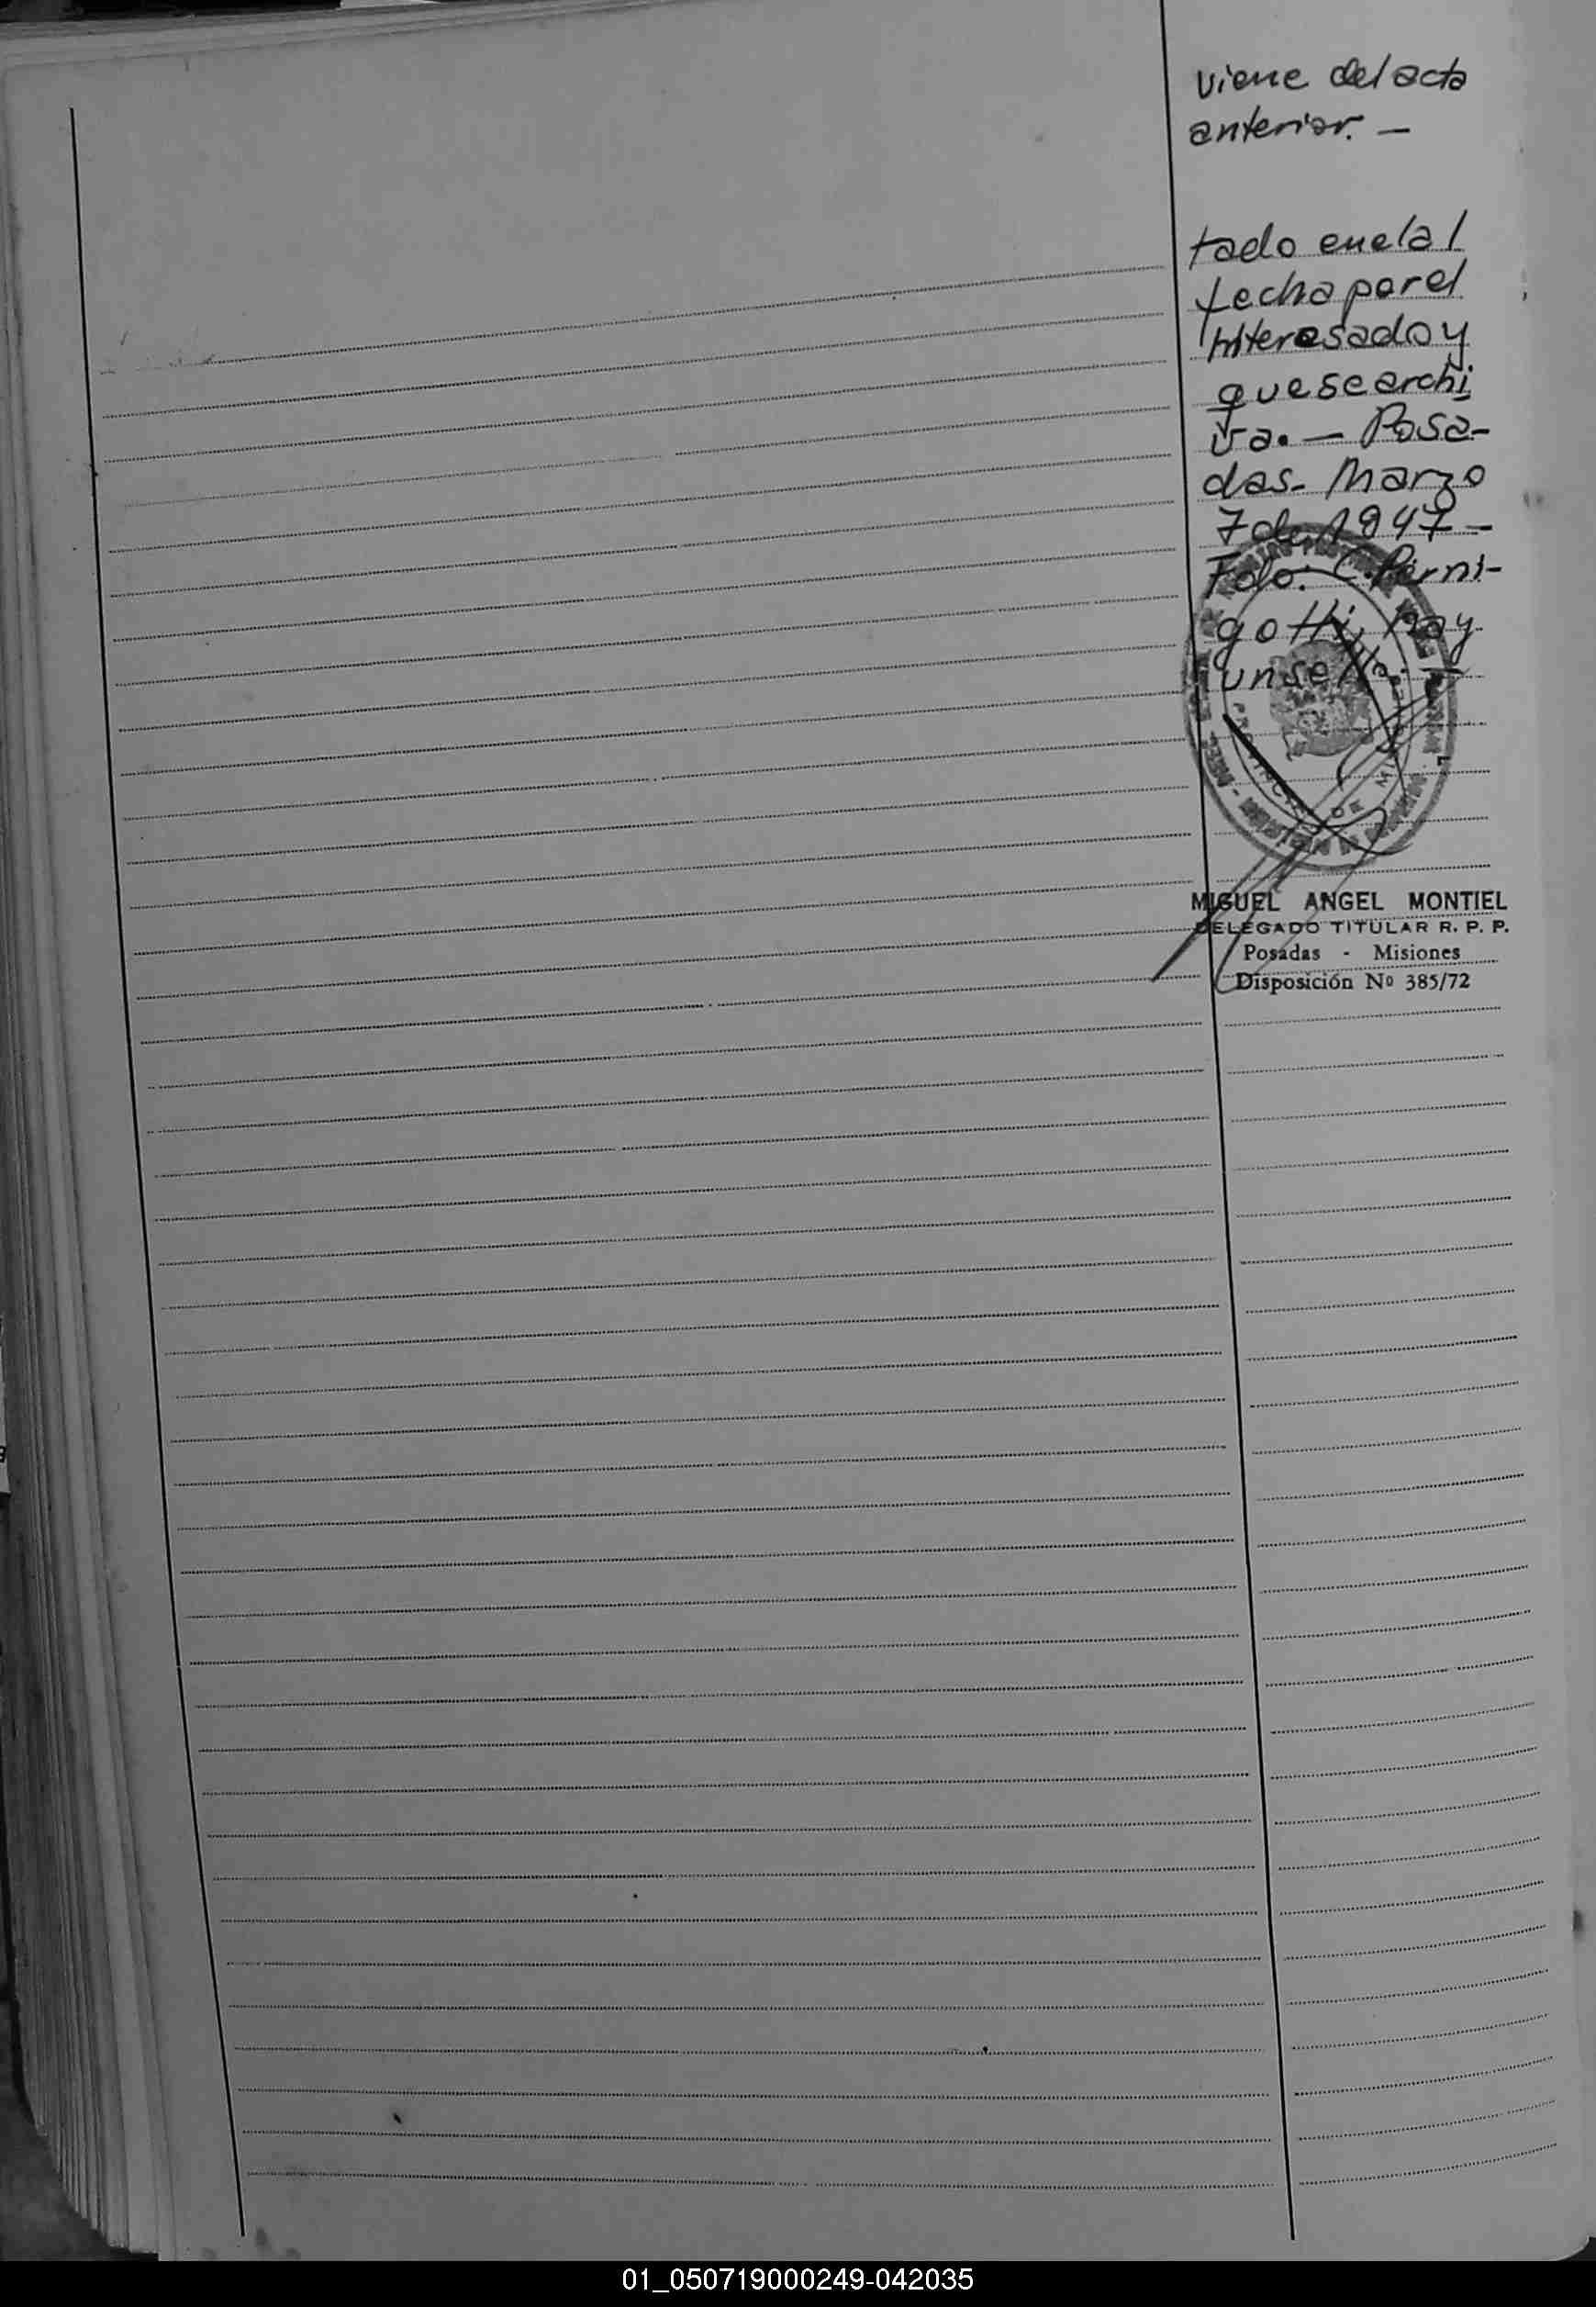 viene del acta
anterior. —
tado en la /
fecha por el
interesado y
que se archi
va. — Posa-
das - Marzo
7 de 1947 -
Fdo: C. Perni-
gotti, Hay
un sello. —
PROVINCIA DE M
MIGUEL ANGEL MONTIEL
DELEGADO TITULAR R. P. P.
Posadas - Misiones
Disposición Nº 385/72
01_050719000249-042035